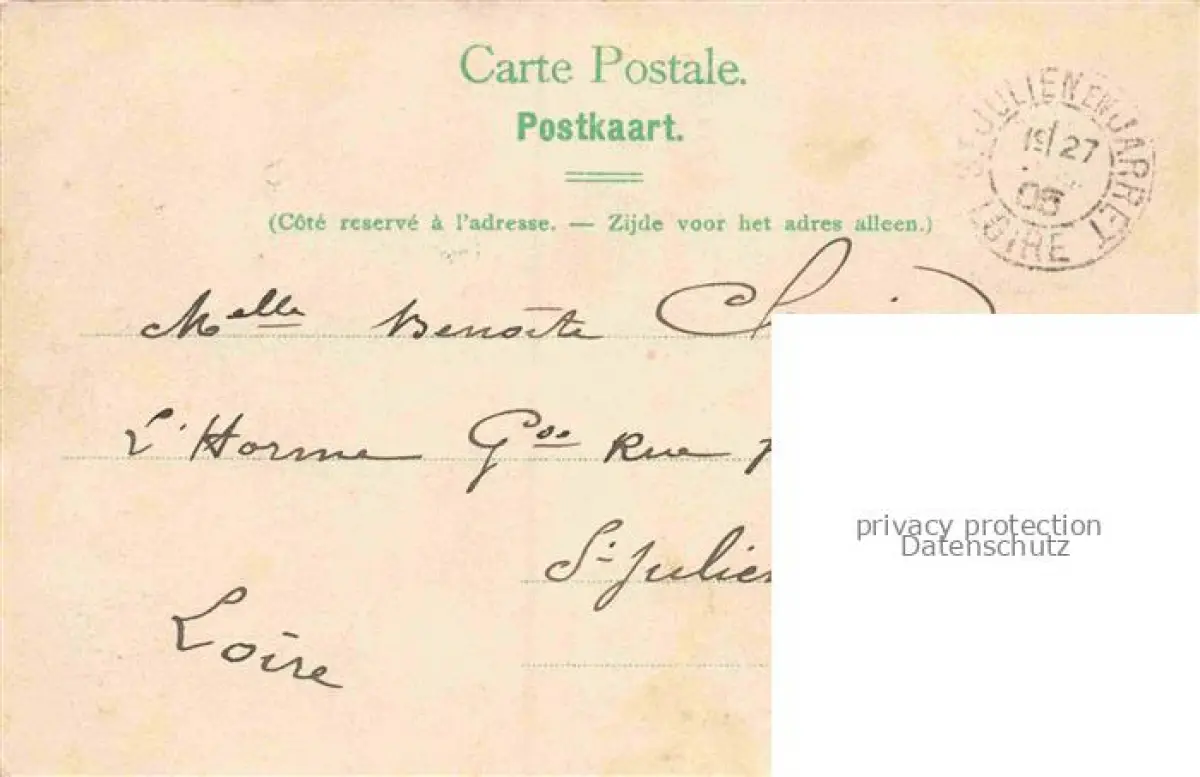 Carte Postale.
Postkaart.
(Côté reservé à l'adresse. — Zijde voor het adres alleen.)
ST JULIEN EN JARRET
LOIRE
27
Melle Benoîte
L'Horme Gde Rue
St Julien
Loire
privacy protection
Datenschutz